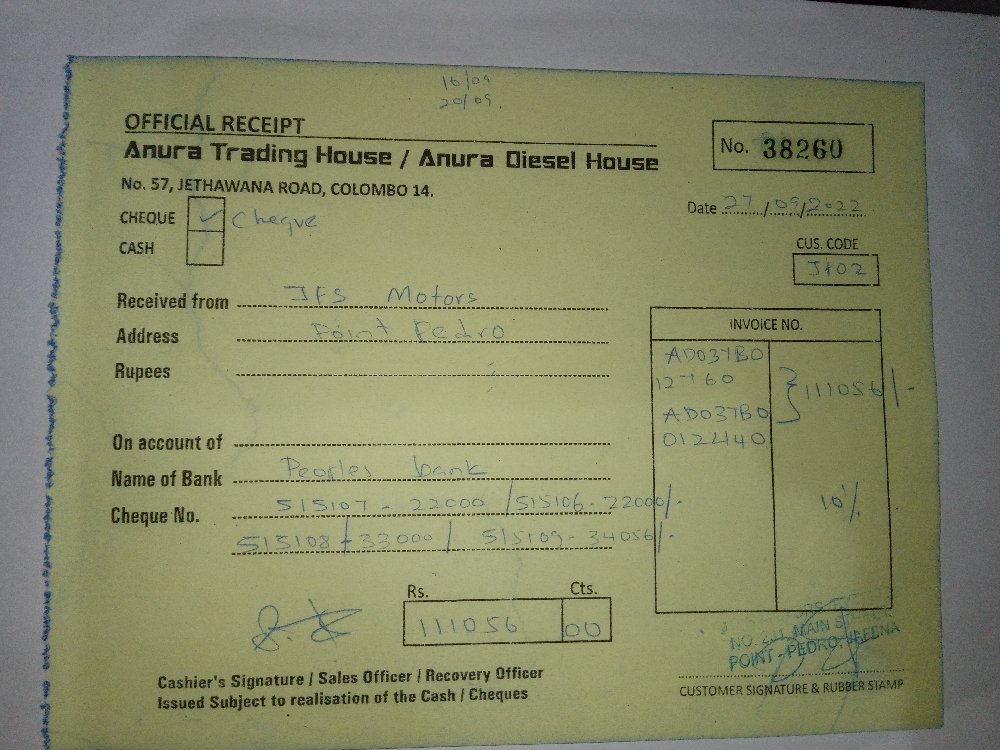 16/09
20/09.
OFFICIAL RECEIPT
Anura Trading House / Anura Diesel House
No. 38260
No. 57, JETHAWANA ROAD, COLOMBO 14.
Date 27/09/2022
CHEQUE ✓ Cheque
CASH
CUS. CODE
Received from JFS Motors
Address Point Pedro
INVOICE NO.
Rupees
AD037B0
12760
111056/-
AD037B0
012440
On account of
Name of Bank Peoples bank
Cheque No. 515107 - 22000 / 515106 - 22000/-
10%
515108 - 33000 / 515109 - 34056/-
Rs. Cts.
111056 00
MAIN
POINT - PEDRO,
Cashier's Signature / Sales Officer / Recovery Officer
Issued Subject to realisation of the Cash / Cheques
CUSTOMER SIGNATURE & RUBBER STAMP